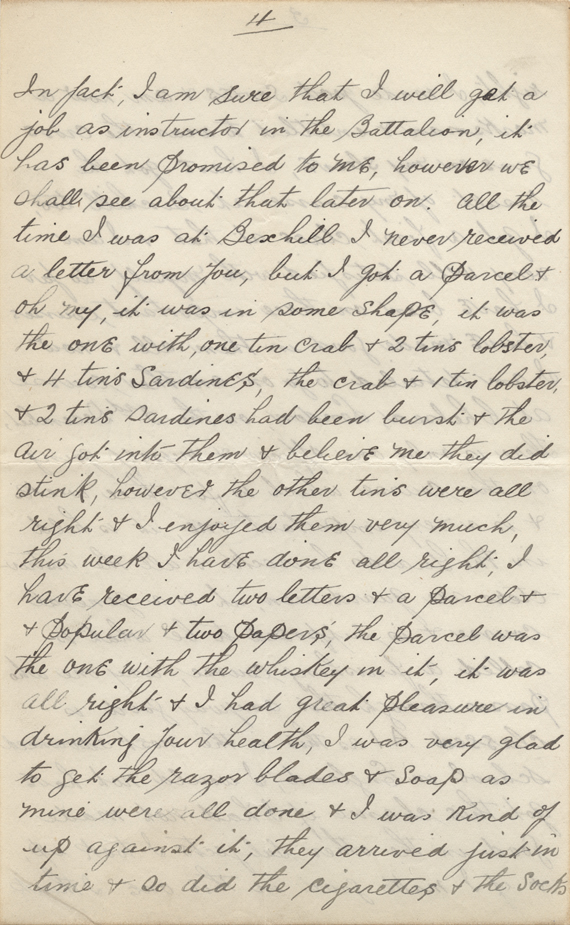 4
In fact, I am sure that I will get a
job as instructor in the Battalion, it
has been promised to me, however we
shall see about that later on. All the
time I was at Bexhill I never received
a letter from you, but I got a Parcel &
oh my, it was in some shape, it was
the one with, one tin crab & 2 tins lobster,
& 4 tins Sardines, the crab & 1 tin lobster,
& 2 tins sardines had been burst & the
air got into them & believe me they did
stink, however the other tins were all
right & I enjoyed them very much,
this week I have done all right, I
have received two letters & a Parcel &
& Popular & two Papers, the Parcel was
the one with the whiskey in it, it was
all right & I had great pleasure in
drinking your health, I was very glad
to get the razor blades & Soap as
mine were all done & I was kind of
up against it, they arrived just in
time & so did the cigarettes & the Socks